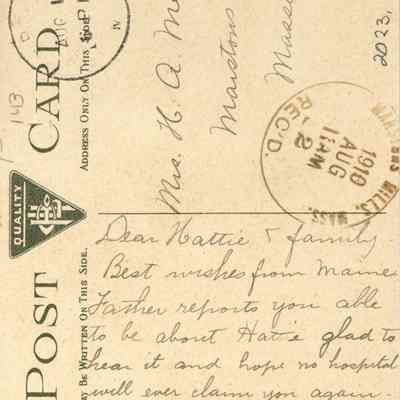 POST CARD
QUALITY
ADDRESS ONLY ON THIS SIDE.
BE WRITTEN ON THIS SIDE.
143
AUG
IV
Mrs. H. A.
Marstons
Mass
2023,
MILLS,
MASS.
AUG 2
11 AM
1910
REC'D.
Dear Hattie & family.
Best wishes from Maine
Father reports you able
to be about Hattie glad to
hear it and hope no hospital
will ever claim you again.